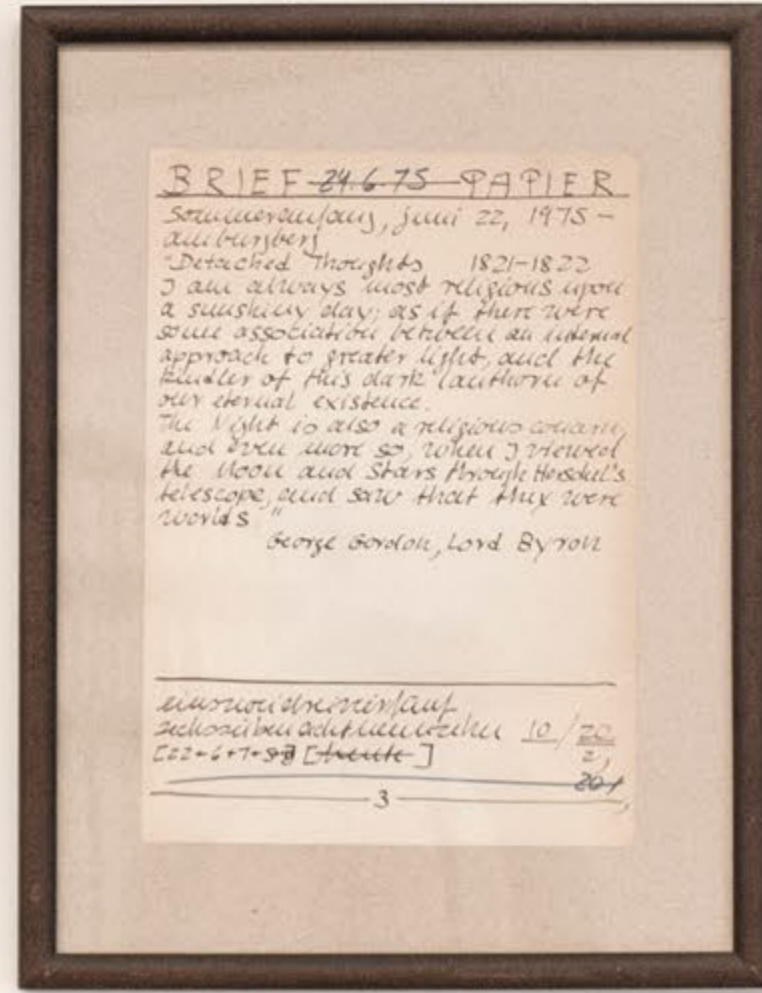 BRIEF 24.6.75 PAPIER
Sommeranfang, juni 22, 1975 –
amburgberg
"Detached Thoughts 1821-1822
I am always most religious upon
a sunshiny day; as if there were
some association between an internal
approach to greater light, and the
kindler of this dark lanthorn of
our eternal existence.
The Night is also a religious concern,
and even more so, when I viewed
the Moon and Stars through Herschel's
telescope, and saw that they were
worlds"
George Gordon, Lord Byron
einszweidreivierfünf
sechssiebenachtneunzehn 10/20
[22+6+7+5 [heute] 2,
201
3